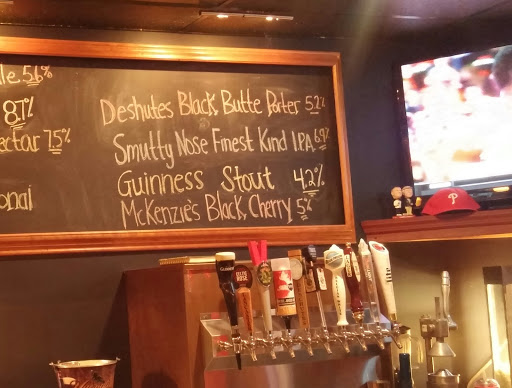 le 5.6%
8.7%
ectar 7.5%
onal
Deshutes Black Butte Porter 5.2%
Smutty Nose Finest Kind I.P.A. 6.9%
Guinness Stout 4.2%
McKenzie's Black Cherry 5%
P